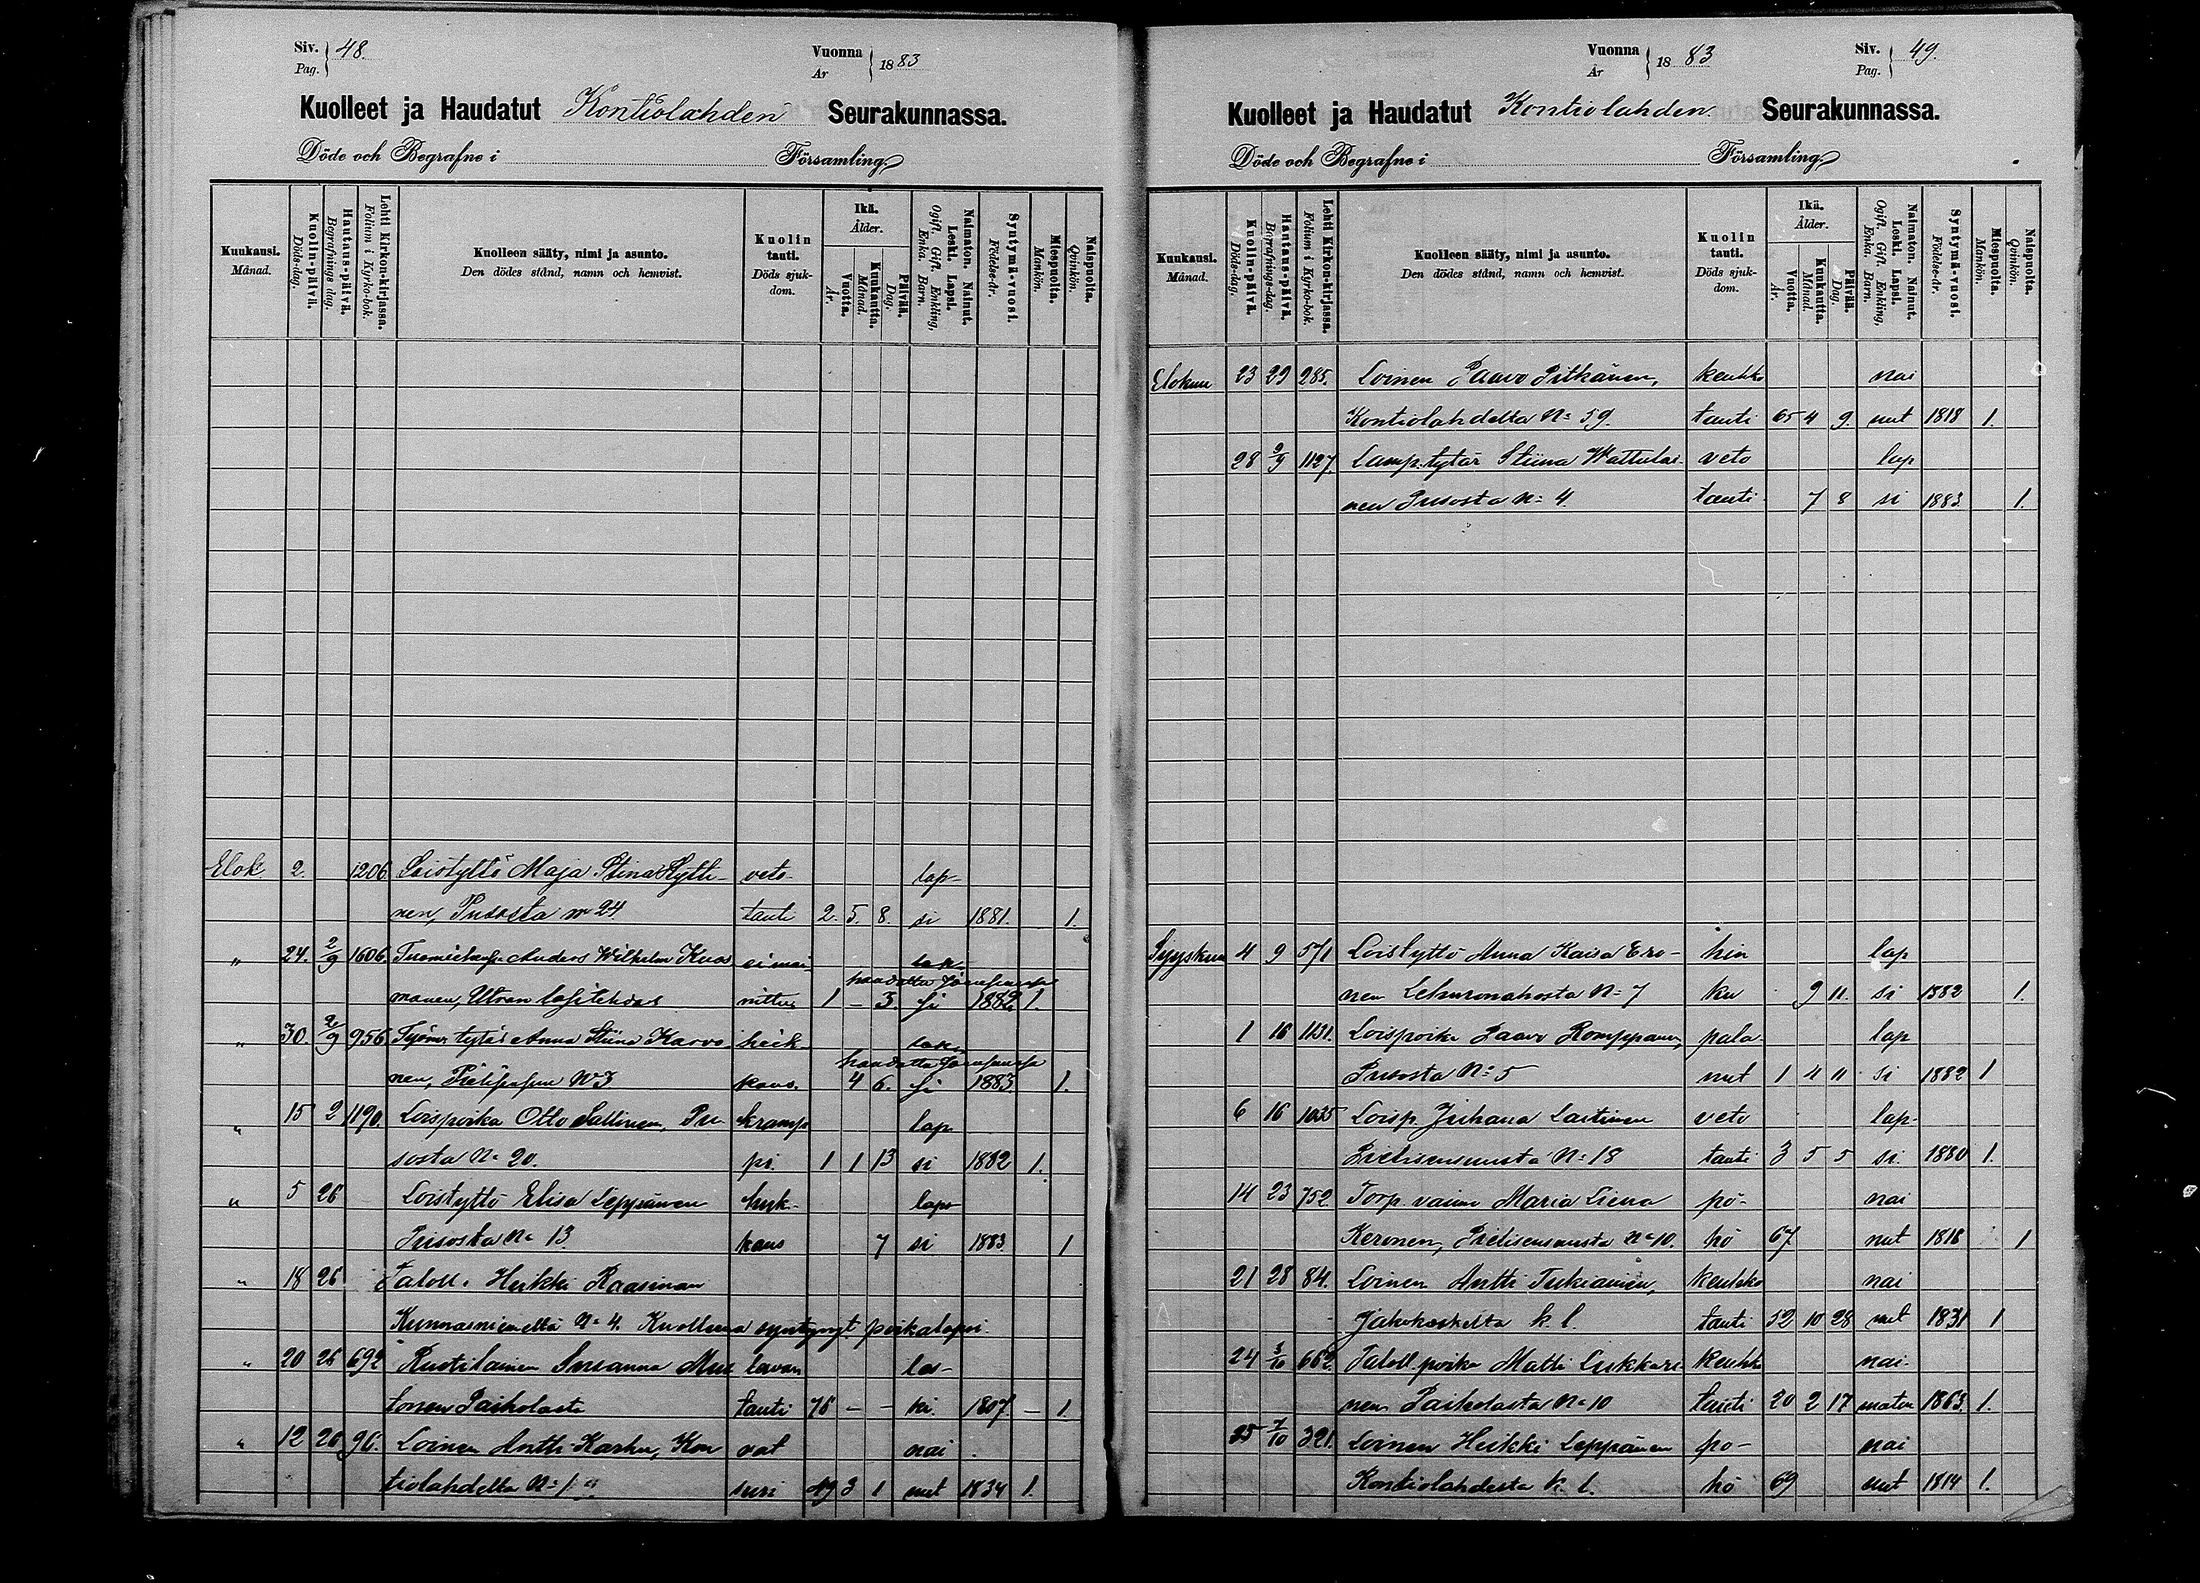 Siv. Pag. 48.
Vuonna År 1883
Kuolleet ja Haudatut Kontiolahden Seurakunnassa.
Döde och Begrafne i Församling.
Kuukausi. Månad.
Kuolin-päivä. Döds-dag.
Hautaus-päivä. Begrafnings dag.
Lehti Kirkon-kirjassa. Folium i Kyrko-bok.
Kuolleen sääty, nimi ja asunto. Den dödes stånd, namn och hemvist.
Kuolin tauti. Döds sjukdom.
Ikä. Ålder.
Vuotta. År.
Kuukautta. Månad.
Päivää. Dag.
Naimaton. Nainut. Leski. Lapsi. Ogift, Gift, Enkling, Enka. Barn.
Syntymä-vuosi. Födelse-år.
Miespuolta. Mankön.
Naispuolta. Qvinkön.
Elok. 2. 1206 Loistyttö Maja Stina Kytti- veto- lap-
nen, Pusosta No 24. tauti 2. 5. 8. si 1881. 1.
" 24. 2/9 1606. Anders Wilhelm Kuos
manen, Utran 1 – 3. si 1882. 1.
" 30. 2/9 956 tytär Anna Stiina Karvo
nen, No 3 4 6. si 1883. 1.
" 15 2 1190. Loispoika Otto Sallinen, Pu- kramp lap
sosta No 20. pi. 1 1 13 si 1882 1.
" 5 26 Loistyttö Elisa Leppänen huk- lap
Pusosta No 13. kans 7 si 1883. 1
" 18 26 Taloll. Heikki Raasinan
Kunnasniemeltä No 4. Kuollena syntynyt poikalapsi.
" 20 26 692 Ruotilainen Susanna Mus lavan les-
tonen Paiholasta tauti 76 – – ki. 1807. – 1.
" 12 26 96. Loinen Antti Karhu, Kon vat nai
tiolahdelta No 1 suri 49 3 1 nut 1834 1.
Vuonna År 1883
Siv. Pag. 49.
Kuolleet ja Haudatut Kontiolahden. Seurakunnassa.
Döde och Begrafne i Församling.
Kuukausi. Månad.
Kuolin-päivä. Döds-dag.
Hautaus-päivä. Begrafnings-dag.
Lehti Kirkon-kirjassa. Folium i Kyrko-bok.
Kuolleen sääty, nimi ja asunto. Den dödes stånd, namn och hemvist.
Kuolin tauti. Döds sjukdom.
Ikä. Ålder.
Vuotta. År.
Kuukautta. Månad.
Päivää. Dag.
Naimaton. Nainut. Leski. Lapsi. Ogift, Gift, Enkling, Enka. Barn.
Syntymä-vuosi. Födelse-år.
Miespuolta. Mankön.
Naispuolta. Qvinkön.
Elokuu 23 29 285. Loinen Paavo Pitkänen, keuhko nai
Kontiolahdelta No 59. tauti 65 4 9. nut 1818 1.
28 2/9 1127. Lamp. tytär Stiina Wattulai- veto lap
nen Pusosta No 4. tauti 7 8 si 1883. 1.
Syyskuu 4 9 571 Loistyttö Anna Kaisa Ero- hin lap
nen No 7 ku 9 11. si 1882 1.
1 16 1131. Loispoika Paavo Romppanen, pala- lap
Pusosta No 5 nut 1 4 11 si 1882 1
6 16 1035 Loisp. Juhana Laitinen veto lap.
Pielisensuusta No 18 tauti 3 5 5 si. 1880 1.
14 23 752. Torp. vaimo Maria Liena pö- nai
Keronen, Pielisensuusta No 10. hö 67 nut 1816 1
21 28 84. Loinen Antti Tukiainen, keuhko nai
Jakokoskelta k. l. tauti 52 10 28 nut 1831 1
24 3/10 662. Taloll. poika Matti Liukkari- keuhko nai-
nen Paiholasta No 10 tauti 20 2 17 maton 1863. 1.
25 7/10 321. Loinen Heikki Leppänen pö- nai
Kontiolahdesta k. l. hö 69 nut 1814 1.